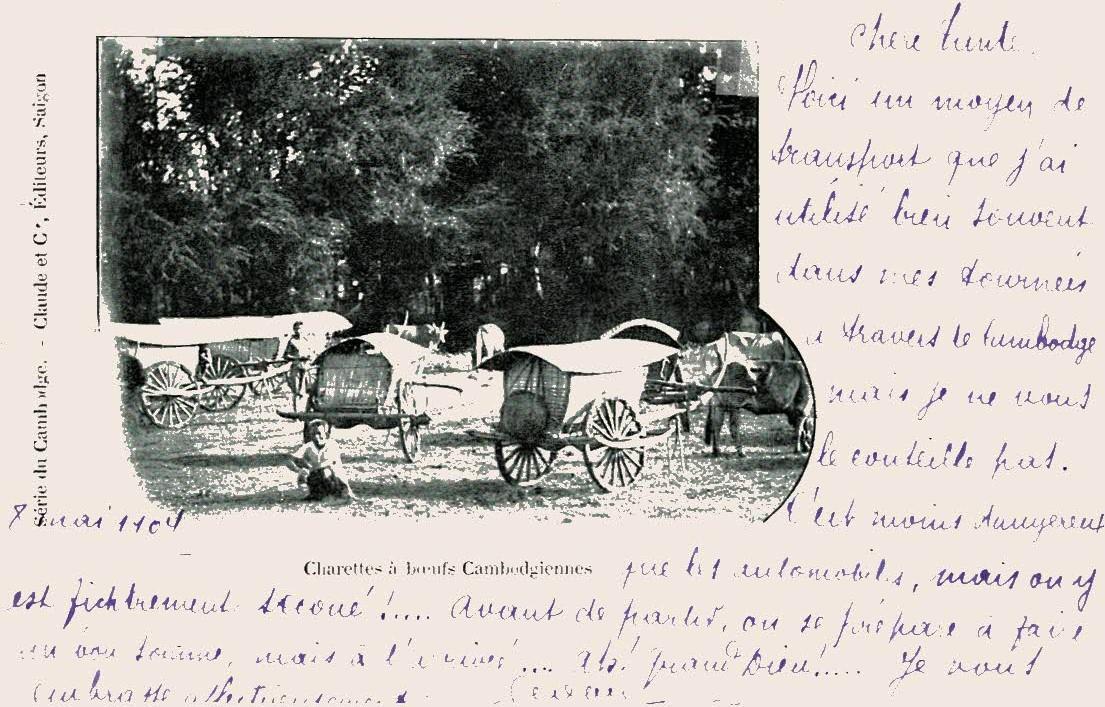 Série du Cambodge. - Claude et Cie, Éditeurs, Saigon
Chère tante.
Voici un moyen de
transport que j'ai
utilisé bien souvent
dans mes tournées
à travers le Cambodge
mais je ne vous
le conseille pas.
C'est moins dangereux
8 mai 1904
Charettes à bœufs Cambodgiennes
que les automobiles, mais on y
est fichtrement secoué !.... Avant de partir, on se prépare à faire
un bon somme, mais à l'arrivée .... Ah! grand Dieu!..... Je vous
embrasse affectueusement